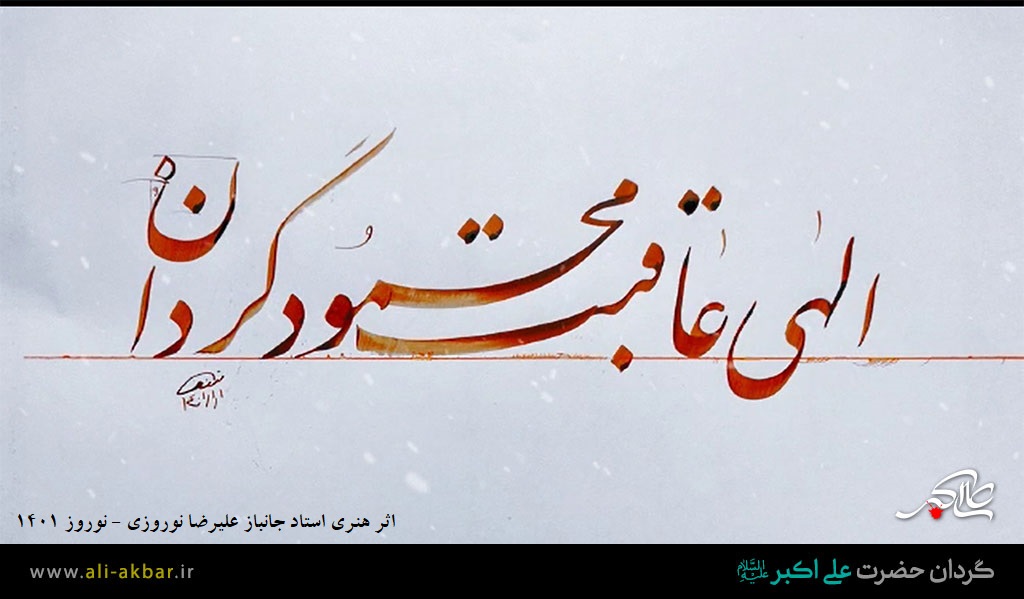 الهی عاقبت محمود گردان
اثر هنری استاد جانباز علیرضا نوروزی - نوروز ۱۴۰۱
علی اکبر
گردان حضرت علی اکبر علیه السلام
www.ali-akbar.ir